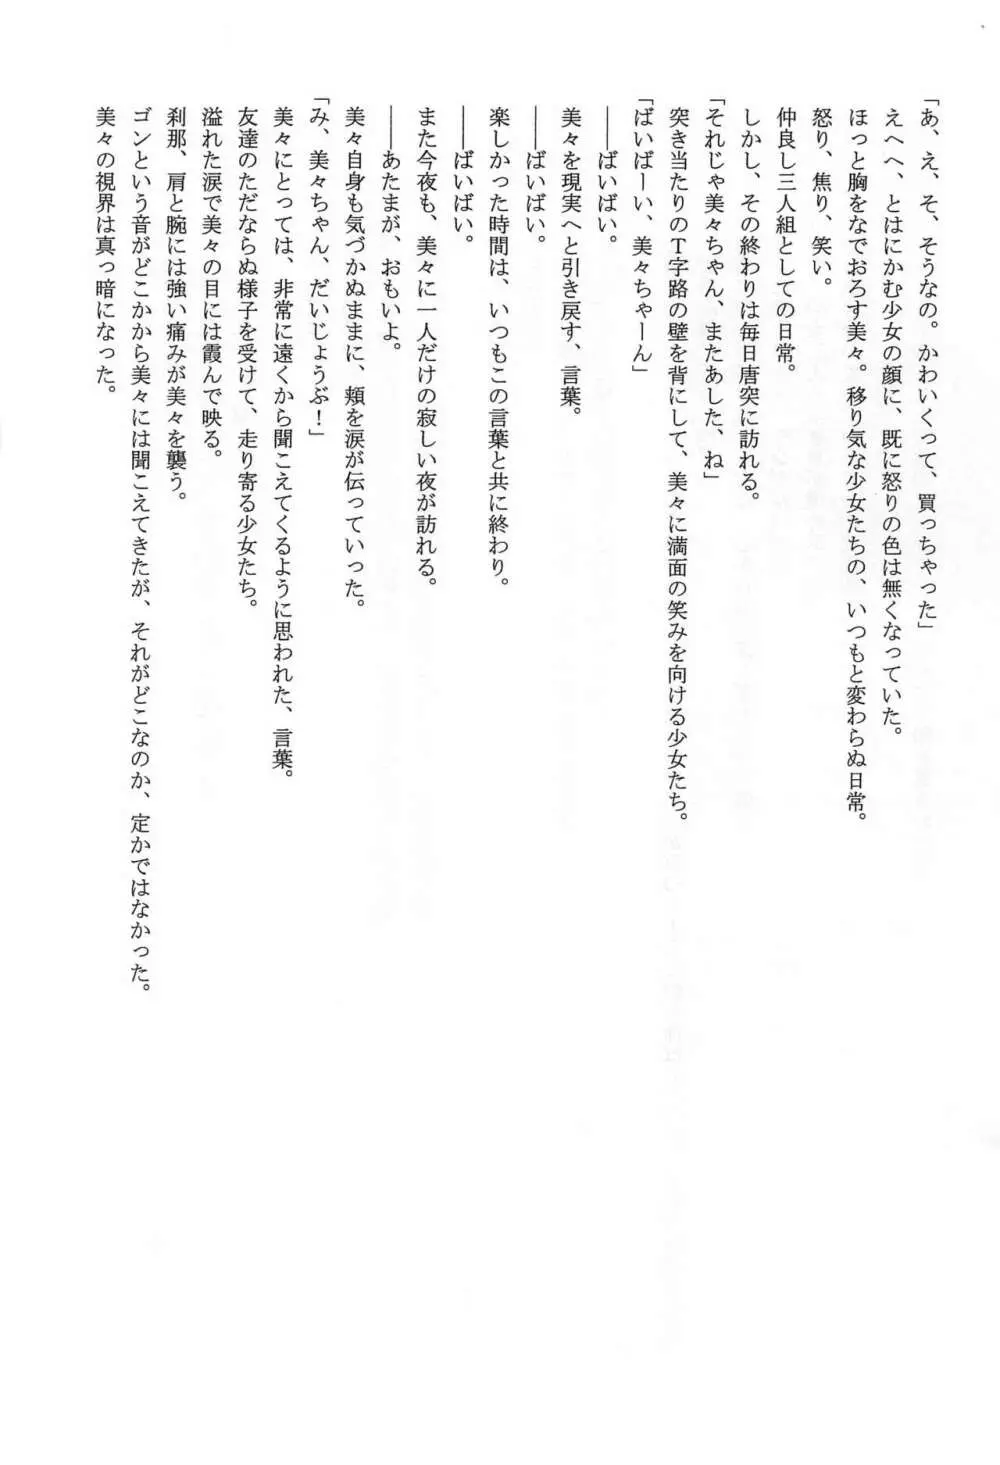 「あ、え、そ、そうなの。かわいくって、買っちゃった」
えへへ、とはにかむ少女の顔に、既に怒りの色は無くなっていた。
ほっと胸をなでおろす美々。移り気な少女たちの、いつもと変わらぬ日常。
怒り、焦り、笑い。
仲良し三人組としての日常。
しかし、その終わりは毎日唐突に訪れる。
「それじゃ美々ちゃん、またあした、ね」
突き当たりのT字路の壁を背にして、美々に満面の笑みを向ける少女たち。
「ばいばーい、美々ちゃーん」
――ばいばい。
美々を現実へと引き戻す、言葉。
――ばいばい。
楽しかった時間は、いつもこの言葉と共に終わり。
――ばいばい。
また今夜も、美々に一人だけの寂しい夜が訪れる。
――あたまが、おもいよ。
美々自身も気づかぬままに、頬を涙が伝っていった。
「み、美々ちゃん、だいじょうぶ！」
美々にとっては、非常に遠くから聞こえてくるように思われた、言葉。
友達のただならぬ様子を受けて、走り寄る少女たち。
溢れた涙で美々の目には霞んで映る。
刹那、肩と腕には強い痛みが美々を襲う。
ゴンという音がどこかから美々には聞こえてきたが、それがどこなのか、定かではなかった。
美々の視界は真っ暗になった。